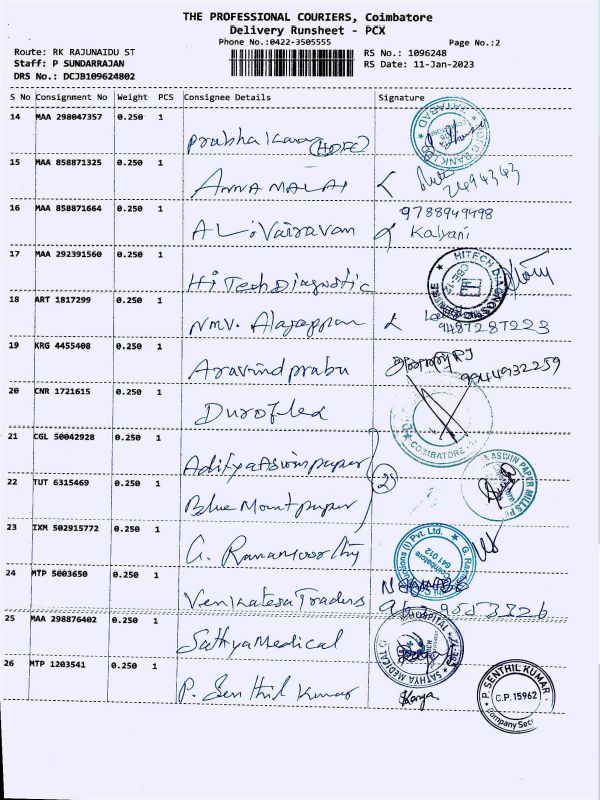 THE PROFESSIONAL COURIERS, Coimbatore
Delivery Runsheet - PCX
Phone No.:0422-3505555
Page No.:2
Route: RK RAJUNAIDU ST
RS No.: 1096248
Staff: P SUNDARRAJAN
RS Date: 11-Jan-2023
DRS No.: DCJB109624802
S No Consignment No Weight PCS Consignee Details Signature
14 MAA 298047357 0.250 1
Prabhakaran (HDFC)
15 MAA 858871325 0.250 1
ANNAMALAI
2494343
16 MAA 858871664 0.250 1
9788949498
AL. Vairavan Kalyani
17 MAA 292391560 0.250 1
HITECH DIAGNOSTIC
Hi Tech Diagnostic
18 ART 1817299 0.250 1
NMV. Alagappan
9487287223
19 KRG 4455408 0.250 1
Aravind prabu
9944932259
20 CNR 1721615 0.250 1
Duroflex
COIMBATORE
21 CGL 50042928 0.250 1
Aditya Aswin paper
ASWIN PAPER MILLS P
22 TUT 6315469 0.250 1
Blue Mount paper
2
23 IXM 502915772 0.250 1
G. Ramamoorthy
(I) Pvt. Ltd.
Coimbatore
641 012
24 MTP 5003650 0.250 1
Venkatesa Traders
25 MAA 298876402 0.250 1
Sathya Medical
SATHYA MEDICAL
HOSPITAL
26 MTP 1203541 0.250 1
P. Senthil Kumar
P. SENTHIL KUMAR
C.P. 15962
Company Secr